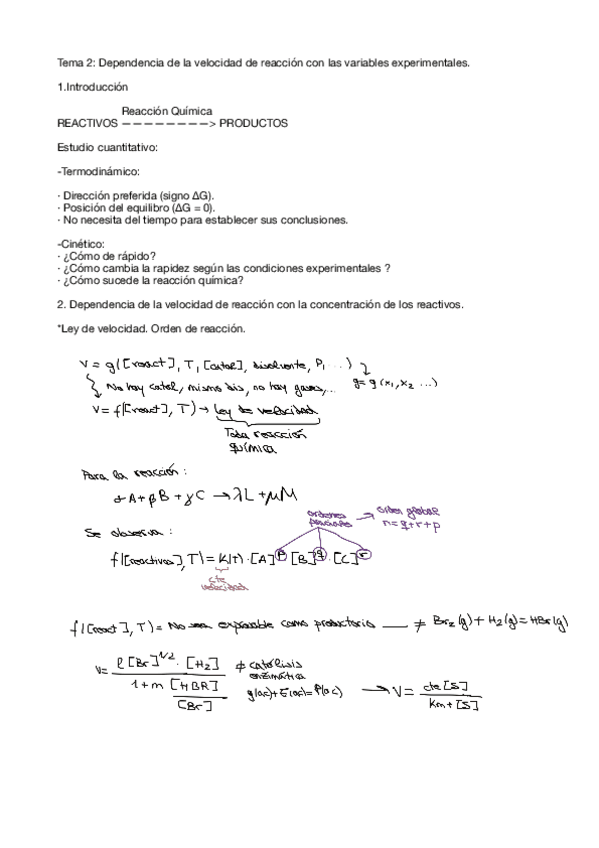 Tema 2: Dependencia de la velocidad de reacción con las variables experimentales.
1.Introducción
Reacción Química
REACTIVOS ————————> PRODUCTOS
Estudio cuantitativo:
-Termodinámico:
· Dirección preferida (signo ΔG).
· Posición del equilibro (ΔG = 0).
· No necesita del tiempo para establecer sus conclusiones.
-Cinético:
· ¿Cómo de rápido?
· ¿Cómo cambia la rapidez según las condiciones experimentales ?
· ¿Cómo sucede la reacción química?
2. Dependencia de la velocidad de reacción con la concentración de los reactivos.
*Ley de velocidad. Orden de reacción.
v = g([react], T, [catal], disolvente, P, ...)
No hay catal, mismo dis, no hay gases,... g = g(x1, x2 ...)
v = f([react], T) → Ley de velocidad
Toda reacción
química
Para la reacción:
αA + βB + γC → λL + μM
ordenes
parciales → orden global
n = q + r + p
Se observa:
f([reactivos], T) = k(T) · [A]^p · [B]^q · [C]^r
cte
velocidad
f([react], T) = expresable como productoria ≠ Br2(g) + H2(g) = HBr(g)
v = l[Br]^1/2 · [H2] / 1 + m [HBR]/[Br]
≠ catálisis
enzimática
→ V = cte[S] / Km + [S]